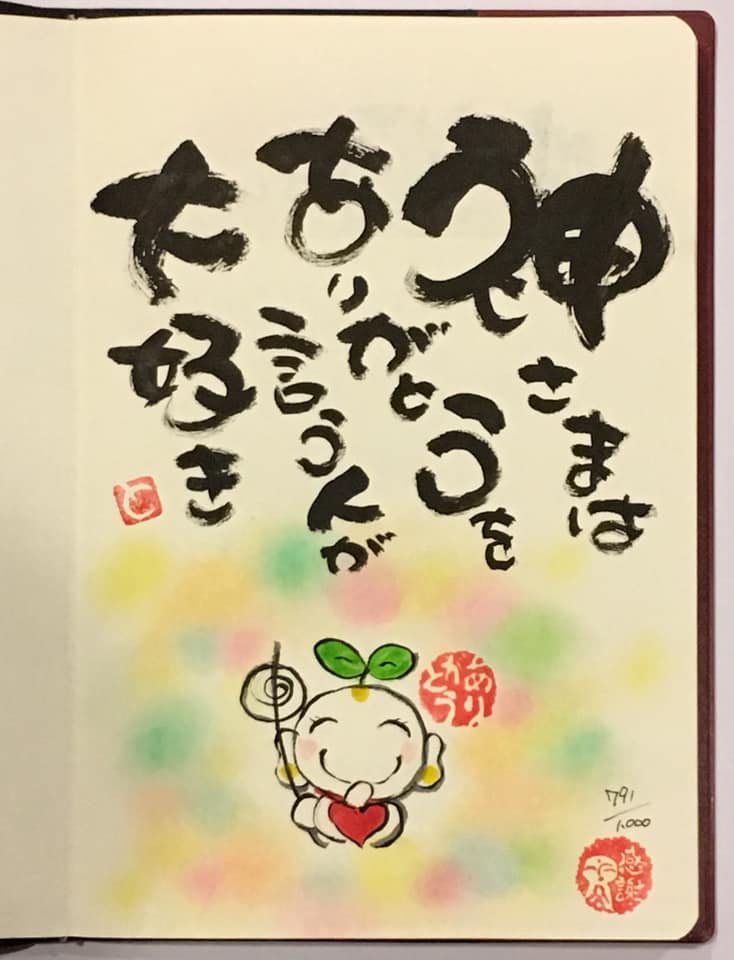 神さまは
ありがとうを
言う人が
大好き
ありがとう
791/1,000
感謝